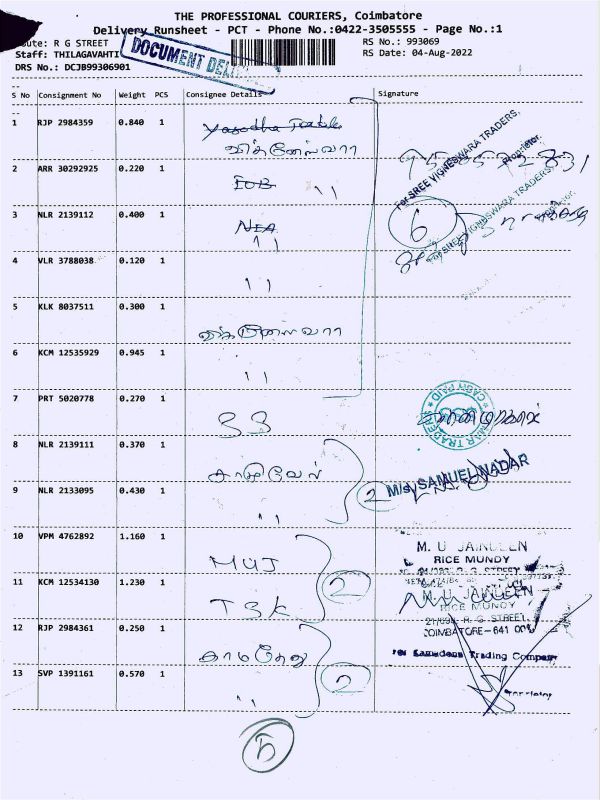 THE PROFESSIONAL COURIERS, Coimbatore
Delivery Runsheet - PCT - Phone No.:0422-3505555 - Page No.:1
Route: R G STREET
RS No.: 993069
Staff: THILAGAVAHTI
RS Date: 04-Aug-2022
DRS No.: DCJB99306901
DOCUMENT
S No Consignment No Weight PCS Consignee Details Signature
1 RJP 2984359 0.840 1
விக்னேஸ்வரா
For SREE VIGNESWARA TRADERS,
Proprietor.
2 ARR 30292925 0.220 1 IOB 11
3 NLR 2139112 0.400 1 11
6
For SREE VIGNESWARA TRADERS,
4 VLR 3788038 0.120 1 11
5 KLK 8037511 0.300 1 விக்னேஸ்வரா
6 KCM 12535929 0.945 1 11
7 PRT 5020778 0.270 1 SS
CASH PAID
8 NLR 2139111 0.370 1
2 M/s. SAMUEL NADAR
9 NLR 2133095 0.430 1 11
10 VPM 4762892 1.160 1 MUJ
M. U JAINULEEN
RICE MUNDY
11 KCM 12534130 1.230 1 TSK 2
M. U. JAINULEEN
RICE MUNDY
R. G. STREET,
COIMBATORE-641 001
12 RJP 2984361 0.250 1 காமதேனு
For Kamadenu Trading Company
13 SVP 1391161 0.570 1 11 2
Proprietor
5